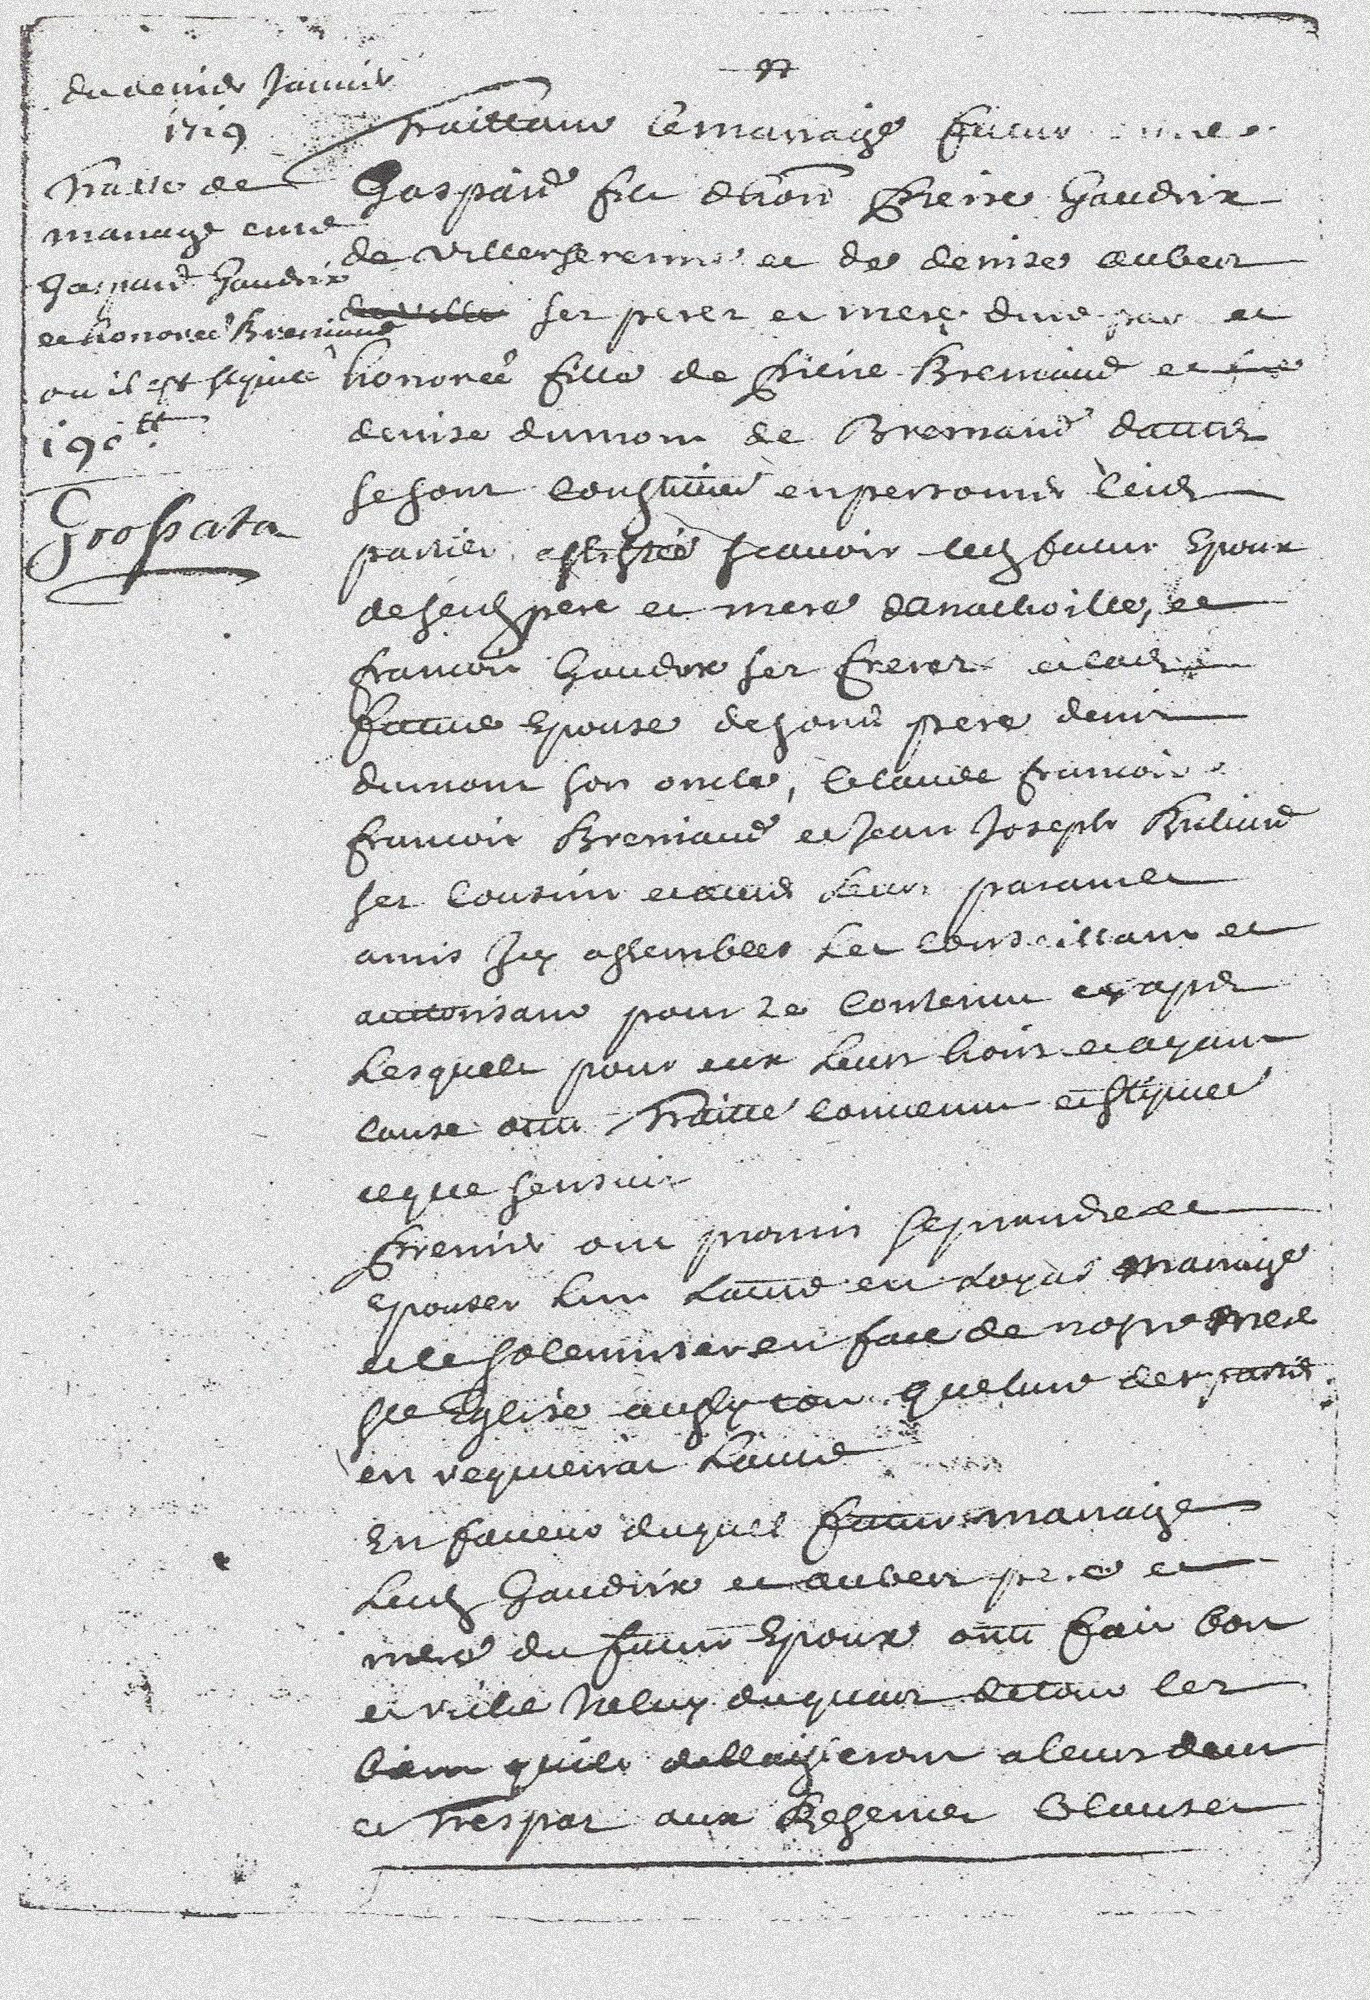 du dernier Janvier
1719
Traitte de
mariage entre
Gaspard Gaudrix
et honorée Breniaud
ou il est stipulé
190 tt
Grossata
Traittant le mariage futur entre
Gaspard fils dhon Pierre Gaudrix
de villersserine et de denise aubert
ses peres et mere dune part et
honorée fille de Pierre Breniaud et
denise dumont de Bremand dautre
se sont constitué en personnes leurs
parties assistée scavoir led futur Epoux
de sesd pere et mere danathoille, et
francois Gaudrix ses freres et lad
future Epouse de sond pere denis
dumont son oncle, Claude francois
francois Breniaud et Jean Joseph
ses cousin et autre leurs parans et
amis Icy assemblees Les conseillant et
auttorisant pour Le contenu cy apres
Lesquels pour eux Leurs hoirs et ayant
cause ont Traitté convenu et stipulé
ce que sensuit
Premier ont promis se prendre et
Epouser Lun Lautre en Loyal mariage
et le solemniser en face de notre mere
ste Eglise aussytot que lune des partie
en requierrat Lautre
En faveur duquel futur mariage
Lesd Gaudrix et aubert pere et
mere du futur Epoux ont fait bon
et riche Iceluy du quart de tous les
biens quils delaisseront a leurs deces
et Trespas aux Reserves Clauses